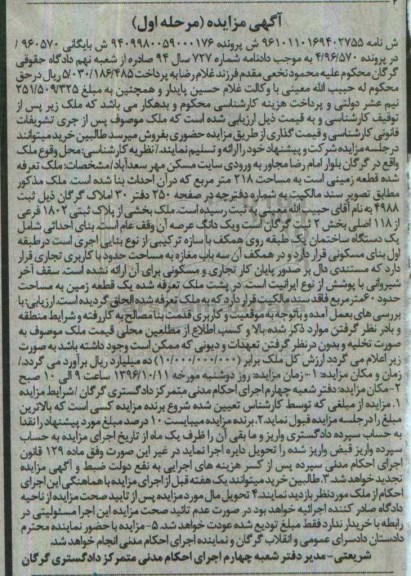 آگهی مزایده (مرحله اول)
ش نامه ۹۶۱۰۱۱۰۱۶۹۴۰۲۷۵۵ ش پرونده ۹۴۰۹۹۸۰۰۵۹۰۰۰۱۷۶ ش بایگانی ۹۶۰۵۷۰ /
در پرونده ۴/۹۶/۵۷۰ به موجب دادنامه شماره ۷۲۷ سال ۹۴ صادره از شعبه نهم دادگاه حقوقی
گرگان محکوم علیه محمود نخعی مقدم فرزند غلامرضا به پرداخت ۵/۰۳۰/۱۸۶/۴۸۵ ریال در حق
محکوم له حبیب الله معینی با وکالت غلام حسین پایدار و همچنین به مبلغ ۲۵۱/۵۰۹/۳۲۵
نیم عشر دولتی و پرداخت هزینه کارشناسی محکوم و بدهکار می باشد که ملک زیر پس از
توقیف کارشناسی و به قیمت ذیل ارزیابی شده است که ملک موصوف پس از جری تشریفات
قانونی کارشناسی و قیمت گذاری از طریق مزایده حضوری بفروش میرسد طالبین خرید میتوانند
در جلسه مزایده شرکت و پیشنهاد خود را ارائه و تسلیم نمایند. / نظریه کارشناسی: محل وقوع ملک
واقع در گرگان بلوار امام رضا مجاور به ورودی سایت مسکن مهر سعدآباد / مشخصات: ملک تعرفه
شده قطعه زمینی است به مساحت ۲۱۸ متر مربع که در آن احداث بنا شده است. ملک مذکور
مطابق تصویر سند مالکیت به شماره دفترچه در صفحه ۲۵۰ دفتر ۳۰ املاک گرگان ذیل ثبت
۴۹۸۸ به نام آقای حبیب الله معینی به ثبت رسیده است. ملک بخشی از پلاک ثبتی ۱۸۰۲ فرعی
از ۱۱۸ اصلی بخش ۲ ثبت گرگان است و یک دانگ عرصه آن وقف عام است. بنای احداثی شامل
یک دستگاه ساختمان یک طبقه روی همکف با سازه ترکیبی از نوع بنایی آجری است در طبقه
اول بنای مسکونی قرار دارد و در همکف آن سه باب مغازه به مساحت حدود با کاربری تجاری قرار
دارد که مستندی دال بر صدور پایان کار تجاری و مسکونی برای آن ارائه نشده است. سقف آخر
شیروانی با پوشش از نوع ایرانیت است. در پشت ملک تعرفه شده یک قطعه زمین به مساحت
حدود ۶۰ مترمربع فاقد سند مالکیت قرار دارد که به ملک تعرفه شده الحاق گردیده است. ارزیابی: با
بررسی های بعمل آمده و باتوجه به موقعیت و کاربری قدمت بنا مصالح به کار رفته و شرایط منطقه
و بادر نظر گرفتن موارد ذکر شده بالا و کسب اطلاع از مطلعین محلی قیمت ملک موصوف به
صورت تخلیه و بدون در نظر گرفتن تعهدات و دیونی که ممکن است وجود داشته باشد به صورت
زیر اعلام می گردد ارزش کل ملک برابر (۱۰/۰۰۰/۰۰۰/۰۰۰) ده میلیارد ریال برآورد می گردد./
زمان و مکان مزایده: ۱- زمان مزایده: روز دوشنبه مورخه ۱۳۹۶/۱۰/۱۱ ساعت ۹ الی ۱۰ صبح
۲- مکان مزایده: دفتر شعبه چهارم اجرای احکام مدنی متمرکز دادگستری گرگان / شرایط مزایده
۱. مزایده از مبلغی که توسط کارشناس تعیین شده شروع برنده مزایده کسی است که بالاترین
مبلغ را در جلسه مزایده قبول نماید. ۲. برنده مزایده میبایست ۱۰ درصد مبلغ مورد پیشنهاد را نقدا
به حساب سپرده دادگستری واریز و ما بقی آن را ظرف یک ماه از تاریخ اجرای مزایده به حساب
سپرده واریز قبض واریز شده را تحویل دایره اجرا نماید در غیر این صورت وفق ماده ۱۲۹ قانون
اجرای احکام مدنی سپرده پس از کسر هزینه های اجرایی به نفع دولت ضبط و آگهی مزایده
تجدید خواهد شد. ۳. طالبین خرید میتوانند یک هفته قبل از اجرای مزایده با هماهنگی این اجرای
احکام از ملک مورد نظر بازدید نمایند. ۴. تحویل مال مورد مزایده پس از تایید صحت مزایده از ناحیه
دادگاه صادر کننده اجرائیه خواهد بود در صورت عدم تائید صحت مزایده این اجرا مسئولیتی در
رابطه با خریدار ندارد فقط مبلغ تودیع شده عودت خواهد شد. ۵- مزایده با حضور نماینده محترم
دادستان دادسرای عمومی و انقلاب گرگان و نماینده اجرای احکام مدنی انجام خواهد شد.
شریعتی- مدیر دفتر شعبه چهارم اجرای احکام مدنی متمرکز دادگستری گرگان